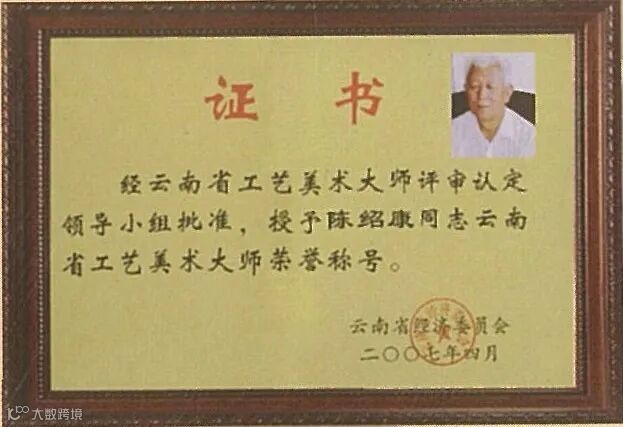 证书
经云南省工艺美术大师评审认定
领导小组批准，授予陈绍康同志云南
省工艺美术大师荣誉称号。
云南省经济委员会
二〇〇七年四月
大数跨境